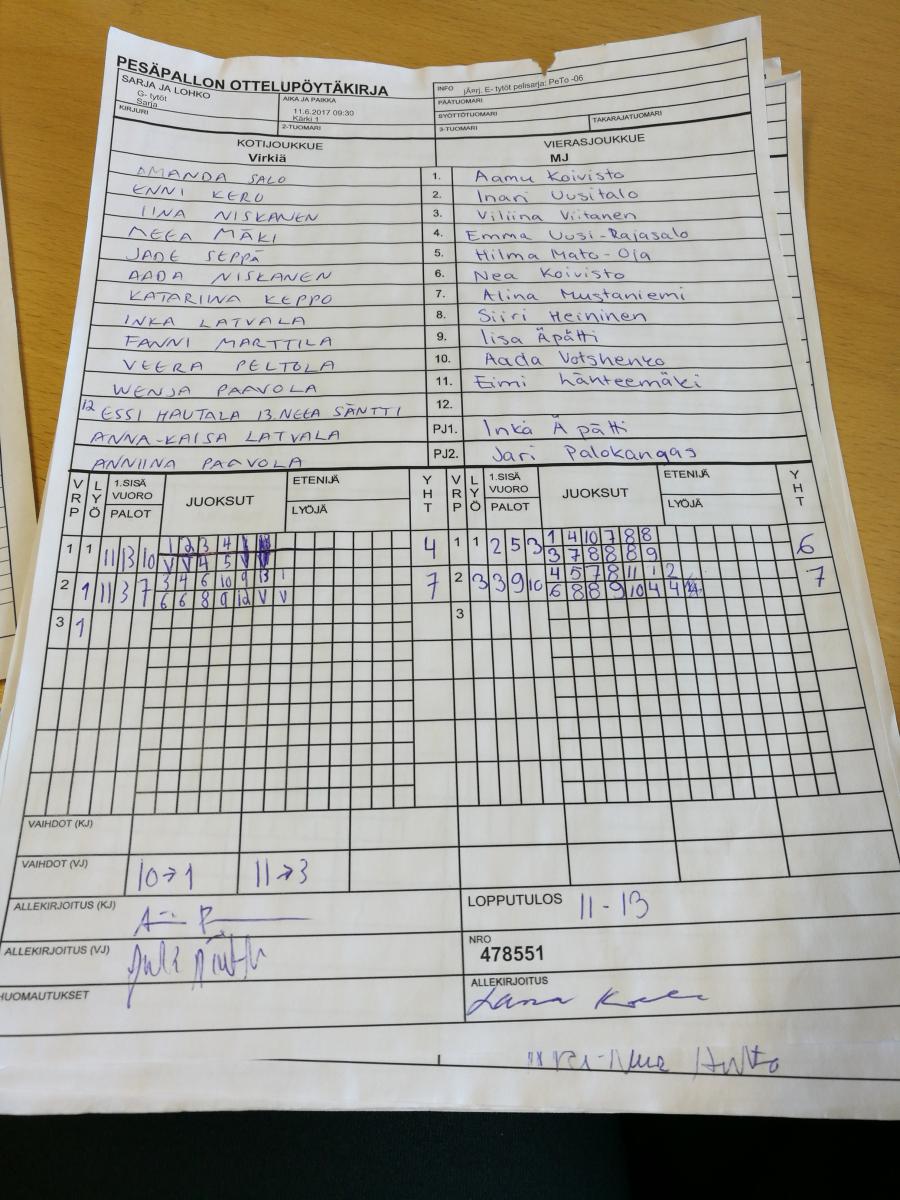 PESÄPALLON OTTELUPÖYTÄKIRJA
SARJA JA LOHKO
G- tytöt
Sarja
KIRJURI
AIKA JA PAIKKA
11.6.2017 09:30
Kärki 1
2-TUOMARI
INFO jÄ¤rj. E- tytöt pelisarja: PeTo -06
PÄÄTUOMARI
SYÖTTÖTUOMARI
3-TUOMARI
TAKARAJATUOMARI
KOTIJOUKKUE VIERASJOUKKUE
Virkiä MJ
AMANDA SALO 1. Aamu Koivisto
ENNI KERO 2. Inari Uusitalo
IINA NISKANEN 3. Viliina Viitanen
MEEA MÄKI 4. Emma Uusi-Rajasalo
JADE SEPPÄ 5. Hilma Mato-Oja
AADA NISKANEN 6. Nea Koivisto
KATARIINA KEPPO 7. Alina Mustaniemi
INKA LATVALA 8. Siiri Heininen
FANNI MARTTILA 9. Iisa Äpätti
VEERA PELTOLA 10. Aada Votshenko
WENJA PAAVOLA 11. Eimi Lähteemäki
12 ESSI HAUTALA 13. NEEA SÄNTTI 12.
ANNA-KAISA LATVALA PJ1. Inka Äpätti
ANNIINA PAAVOLA PJ2. Jari Palokangas
VRP LYÖ 1.SISÄ VUORO PALOT JUOKSUT ETENIJÄ LYÖJÄ YHT VRP LYÖ 1.SISÄ VUORO PALOT JUOKSUT ETENIJÄ LYÖJÄ YHT
1 1 11 3 10 1 2 3 4 4 1 1 2 5 3 1 4 10 7 8 8 6
V V 4 5 V V 3 7 8 8 8 9
2 1 11 3 7 3 4 6 10 9 13 1 7 2 3 3 9 10 4 5 7 8 11 1 2 7
6 6 8 9 12 V V 6 8 8 9 10 4 4
3 1 3
VAIHDOT (KJ)
VAIHDOT (VJ) 10→1 11→3
ALLEKIRJOITUS (KJ) LOPPUTULOS 11-13
ALLEKIRJOITUS (VJ) NRO
478551
HUOMAUTUKSET ALLEKIRJOITUS